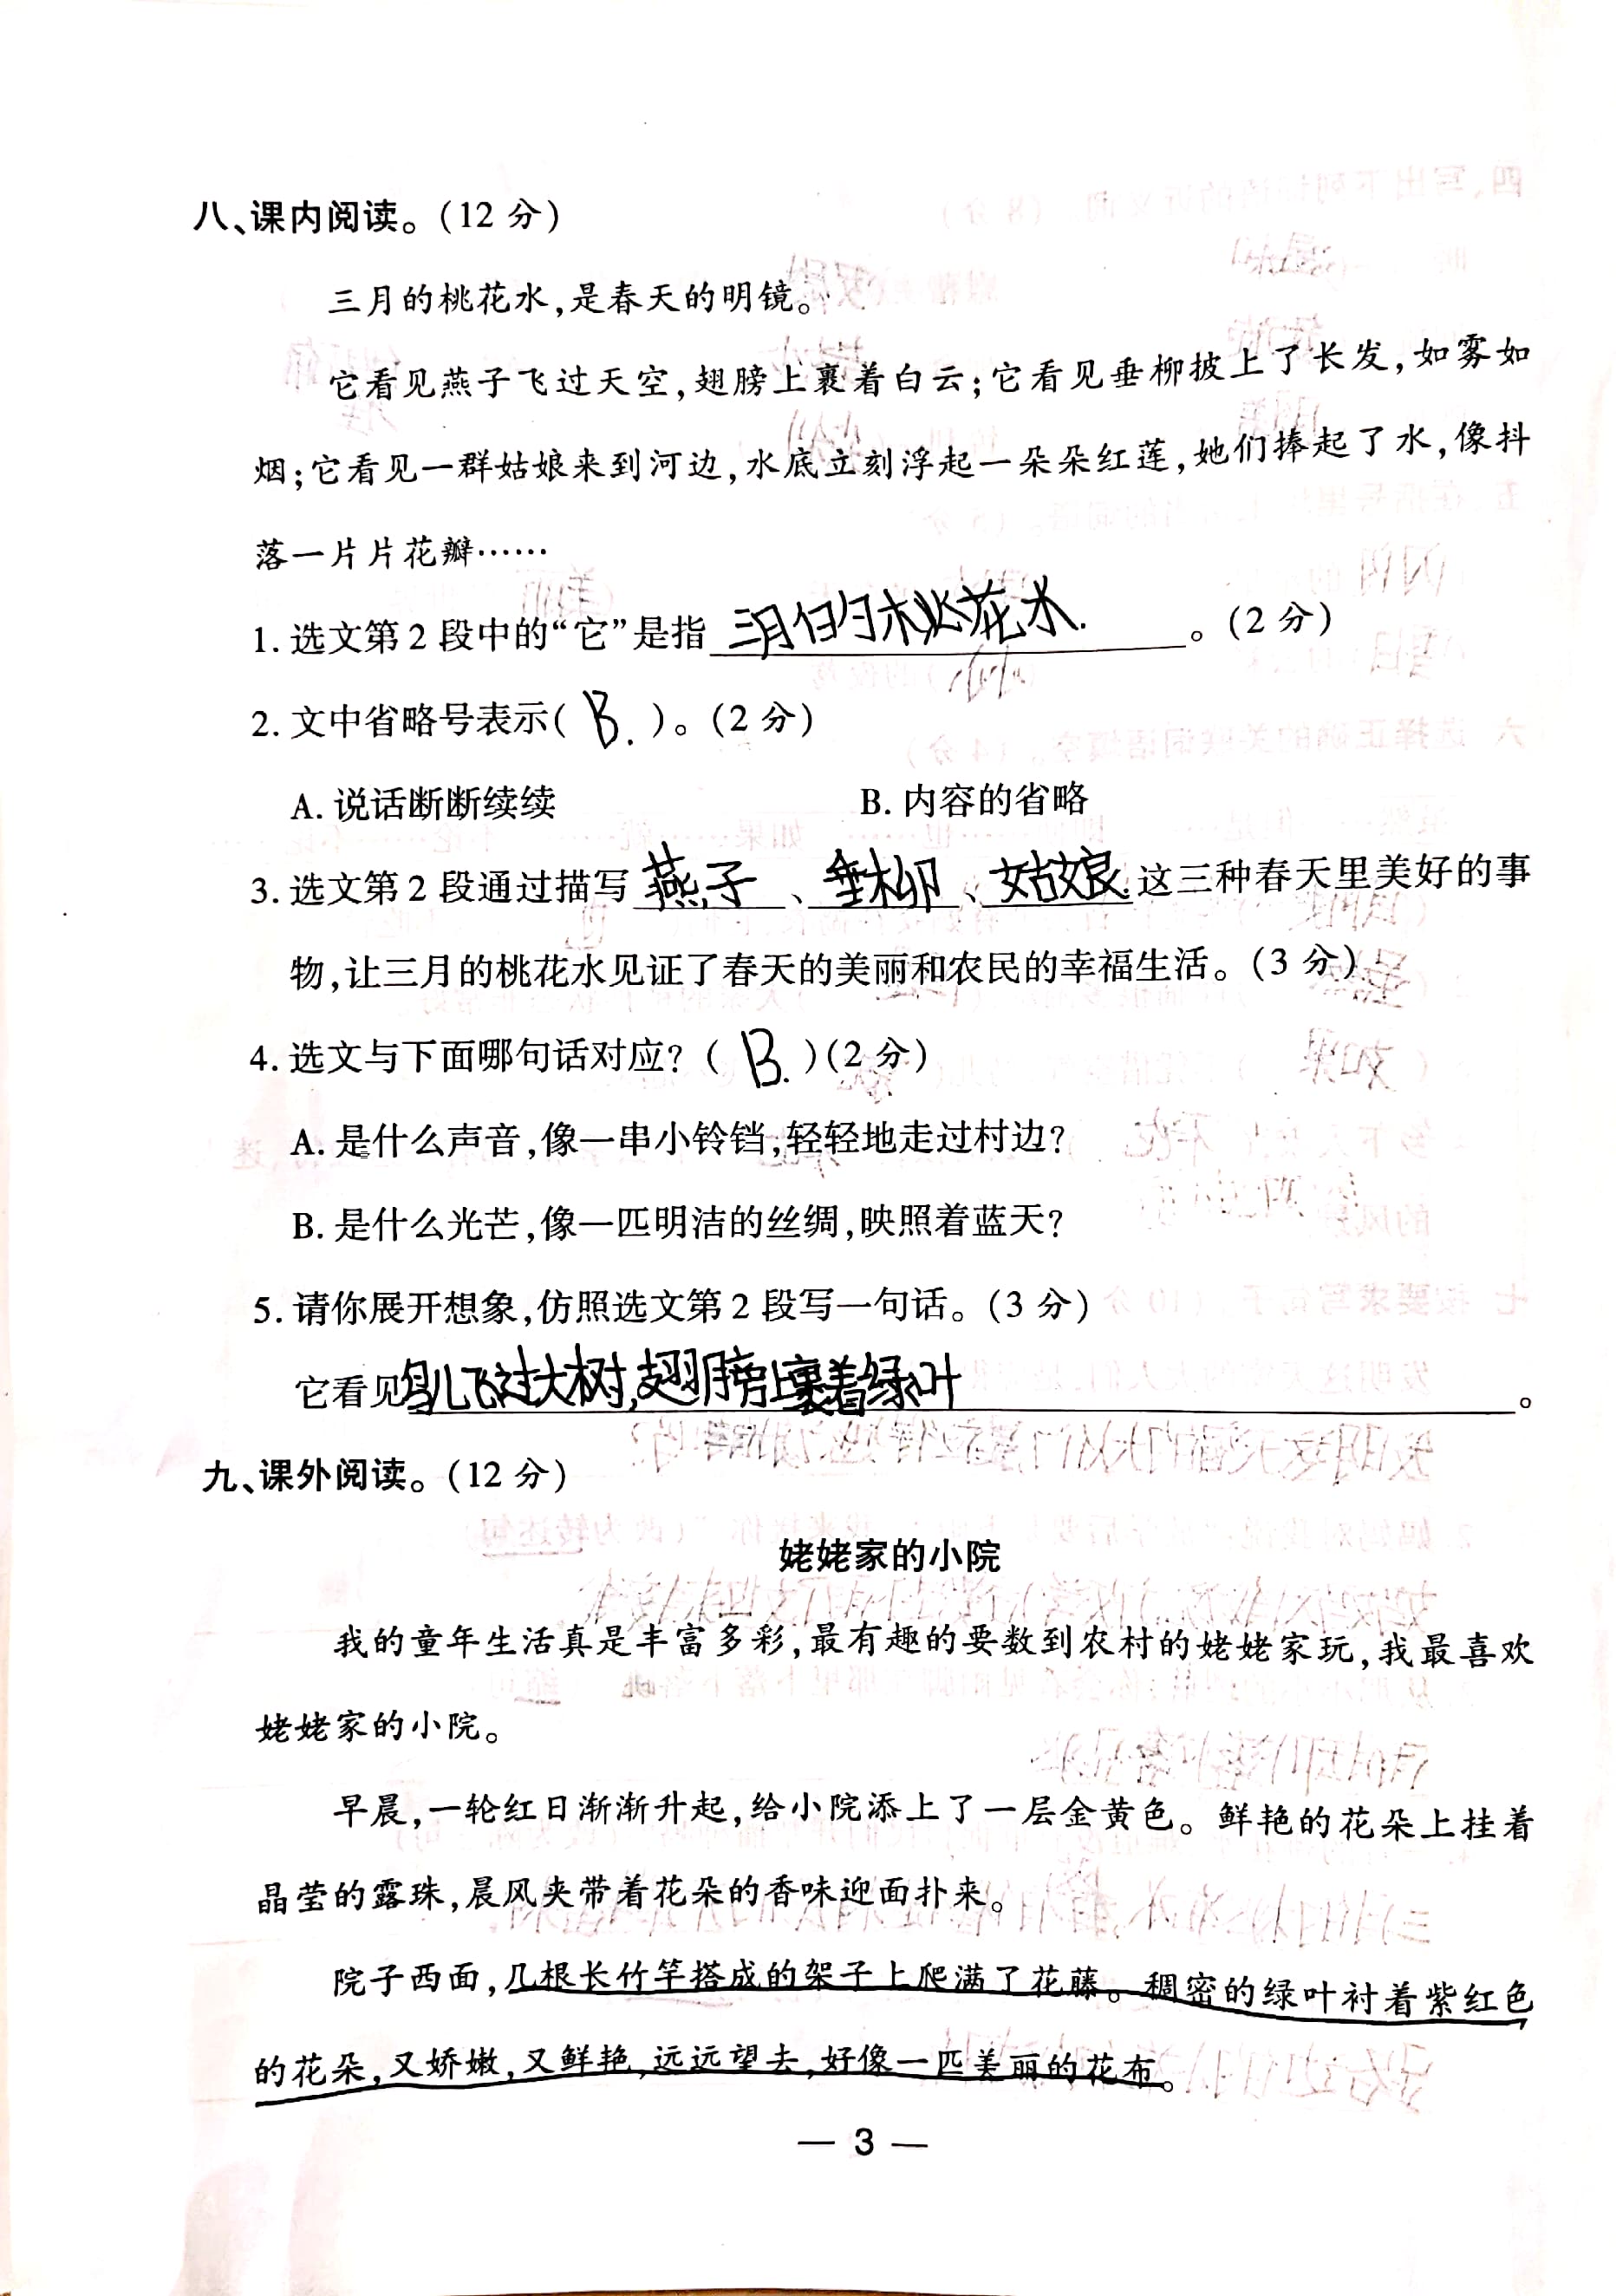 八、课内阅读。(12 分)
三月的桃花水,是春天的明镜。
它看见燕子飞过天空,翅膀上裹着白云;它看见垂柳披上了长发,如雾如
烟;它看见一群姑娘来到河边,水底立刻浮起一朵朵红莲,她们捧起了水,像抖
落一片片花瓣……
1. 选文第 2 段中的“它”是指 三月的桃花水. 。(2 分)
2. 文中省略号表示( B. )。(2 分)
A. 说话断断续续 B. 内容的省略
3. 选文第 2 段通过描写 燕子 、 垂柳 、 姑娘. 这三种春天里美好的事
物,让三月的桃花水见证了春天的美丽和农民的幸福生活。(3 分)
4. 选文与下面哪句话对应? ( B. )(2 分)
A. 是什么声音,像一串小铃铛,轻轻地走过村边?
B. 是什么光芒,像一匹明洁的丝绸,映照着蓝天?
5. 请你展开想象,仿照选文第 2 段写一句话。(3 分)
它看见鸟儿飞过大树,翅膀上裹着绿叶。
九、课外阅读。(12 分)
姥姥家的小院
我的童年生活真是丰富多彩,最有趣的要数到农村的姥姥家玩,我最喜欢
姥姥家的小院。
早晨,一轮红日渐渐升起,给小院添上了一层金黄色。鲜艳的花朵上挂着
晶莹的露珠,晨风夹带着花朵的香味迎面扑来。
院子西面,几根长竹竿搭成的架子上爬满了花藤。稠密的绿叶衬着紫红色
的花朵,又娇嫩,又鲜艳,远远望去,好像一匹美丽的花布。
— 3 —